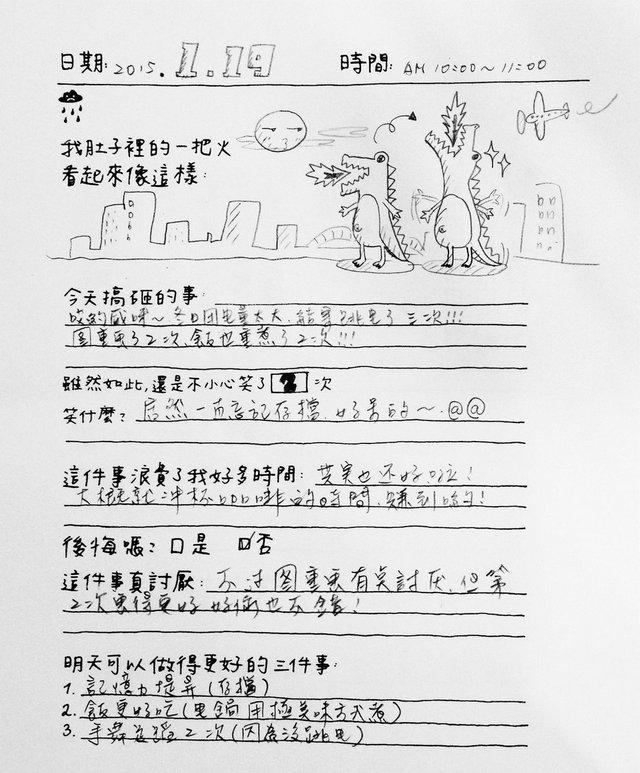 日期: 2015. 1.19 時間: AM 10:00~11:00
我肚子裡的一把火
看起來像這樣:
今天搞砸的事:
電量太大, 結果跳電了三次!!!
圖重畫了2次, 飯也重煮了2次!!!
雖然如此, 還是不小心笑了 2 次
笑什麼? 居然一直忘記存檔, 好笨的~.@@
這件事浪費了我好多時間: 其实也还好啦!
大概就沖杯咖啡的時間, 賺到的!
後悔嗎? 口是 口否
這件事真討厭: 不过图重畫有点討厌, 但第
2次畫得更好 好像也不錯!
明天可以做得更好的三件事:
1. 記憶力提昇(存檔)
2. 飯更好吃(電鍋用極美味方式煮)
3. 手舞足蹈2次(因為沒跳電)